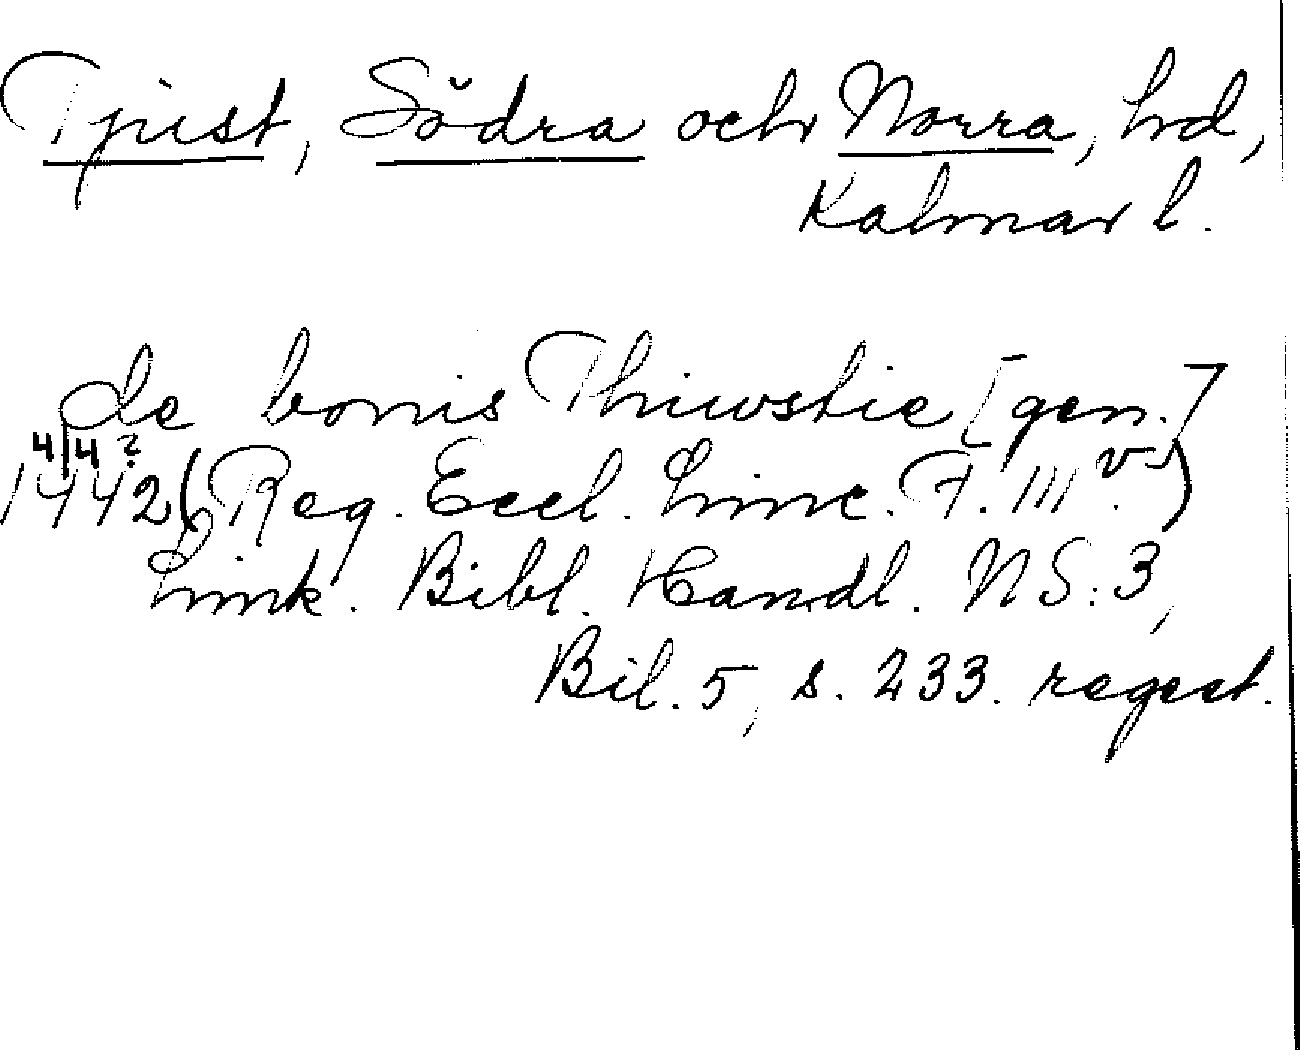 Tjust, Södra och Norra, hd,
Kalmar l.
de bonis Thiwstie [gen.]
4/4 ?
1442 (Reg. Eccl. Linc. F. 111 v.)
Link. Bibl. Handl. NS: 3,
Bil. 5, s. 233. regest.